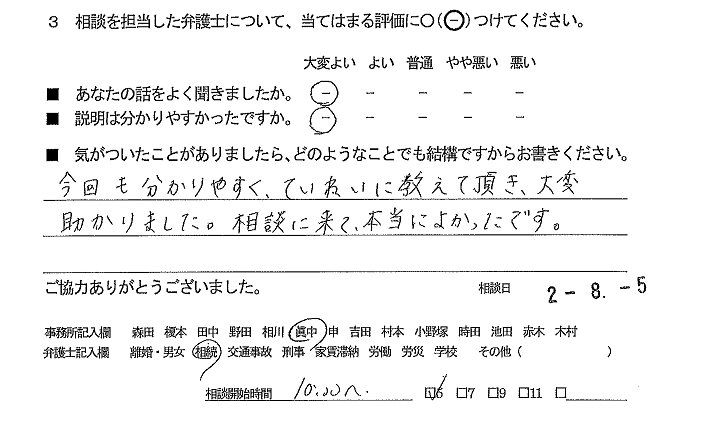 3 相談を担当した弁護士について、当てはまる評価に○(⊖)つけてください。
大変よい よい 普通 やや悪い 悪い
■ あなたの話をよく聞きましたか。 − − − − −
■ 説明は分かりやすかったですか。 − − − − −
■ 気がついたことがありましたら、どのようなことでも結構ですからお書きください。
今回も分かりやすく、ていねいに教えて頂き、大変
助かりました。相談に来て、本当によかったです。
ご協力ありがとうございました。 相談日 2-8.-5
事務所記入欄 森田 榎本 田中 野田 相川 眞中 申 吉田 村本 小野塚 時田 池田 赤木 木村
弁護士記入欄 離婚・男女 相続 交通事故 刑事 家賃滞納 労働 労災 学校 その他( )
相談開始時間 10:00〜 □6 □7 □9 □11 □